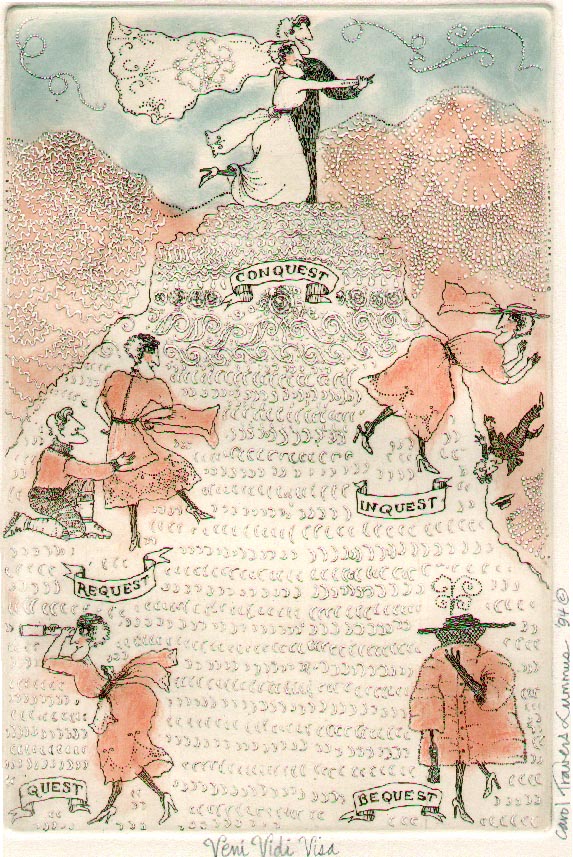 CONQUEST
INQUEST
REQUEST
QUEST
BEQUEST
Veni Vidi Visa
Carol Travers Lummus '94 ©